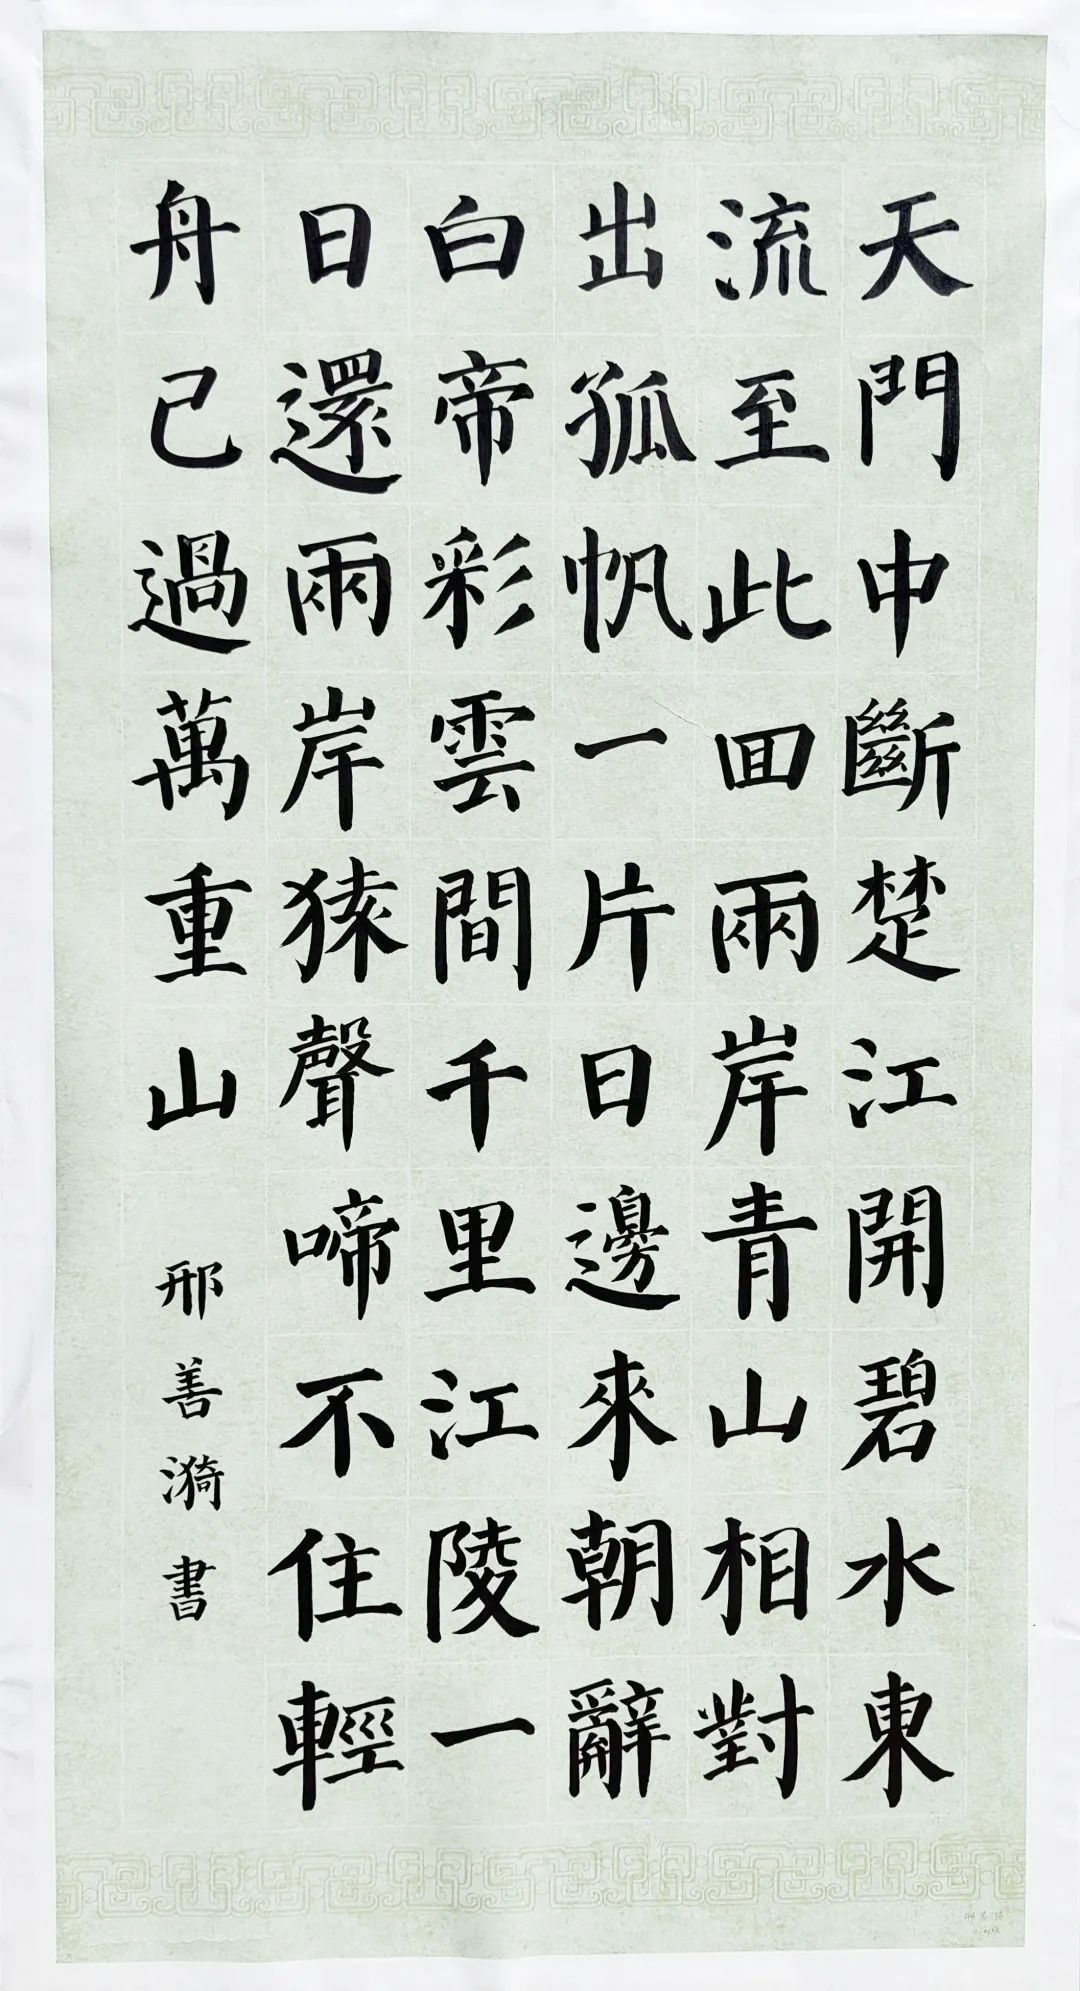 天門中斷楚江開碧水東
流至此回兩岸青山相對
出孤帆一片日邊來朝辭
白帝彩雲間千里江陵一
日還兩岸猿聲啼不住輕
舟已過萬重山
邢善漪書